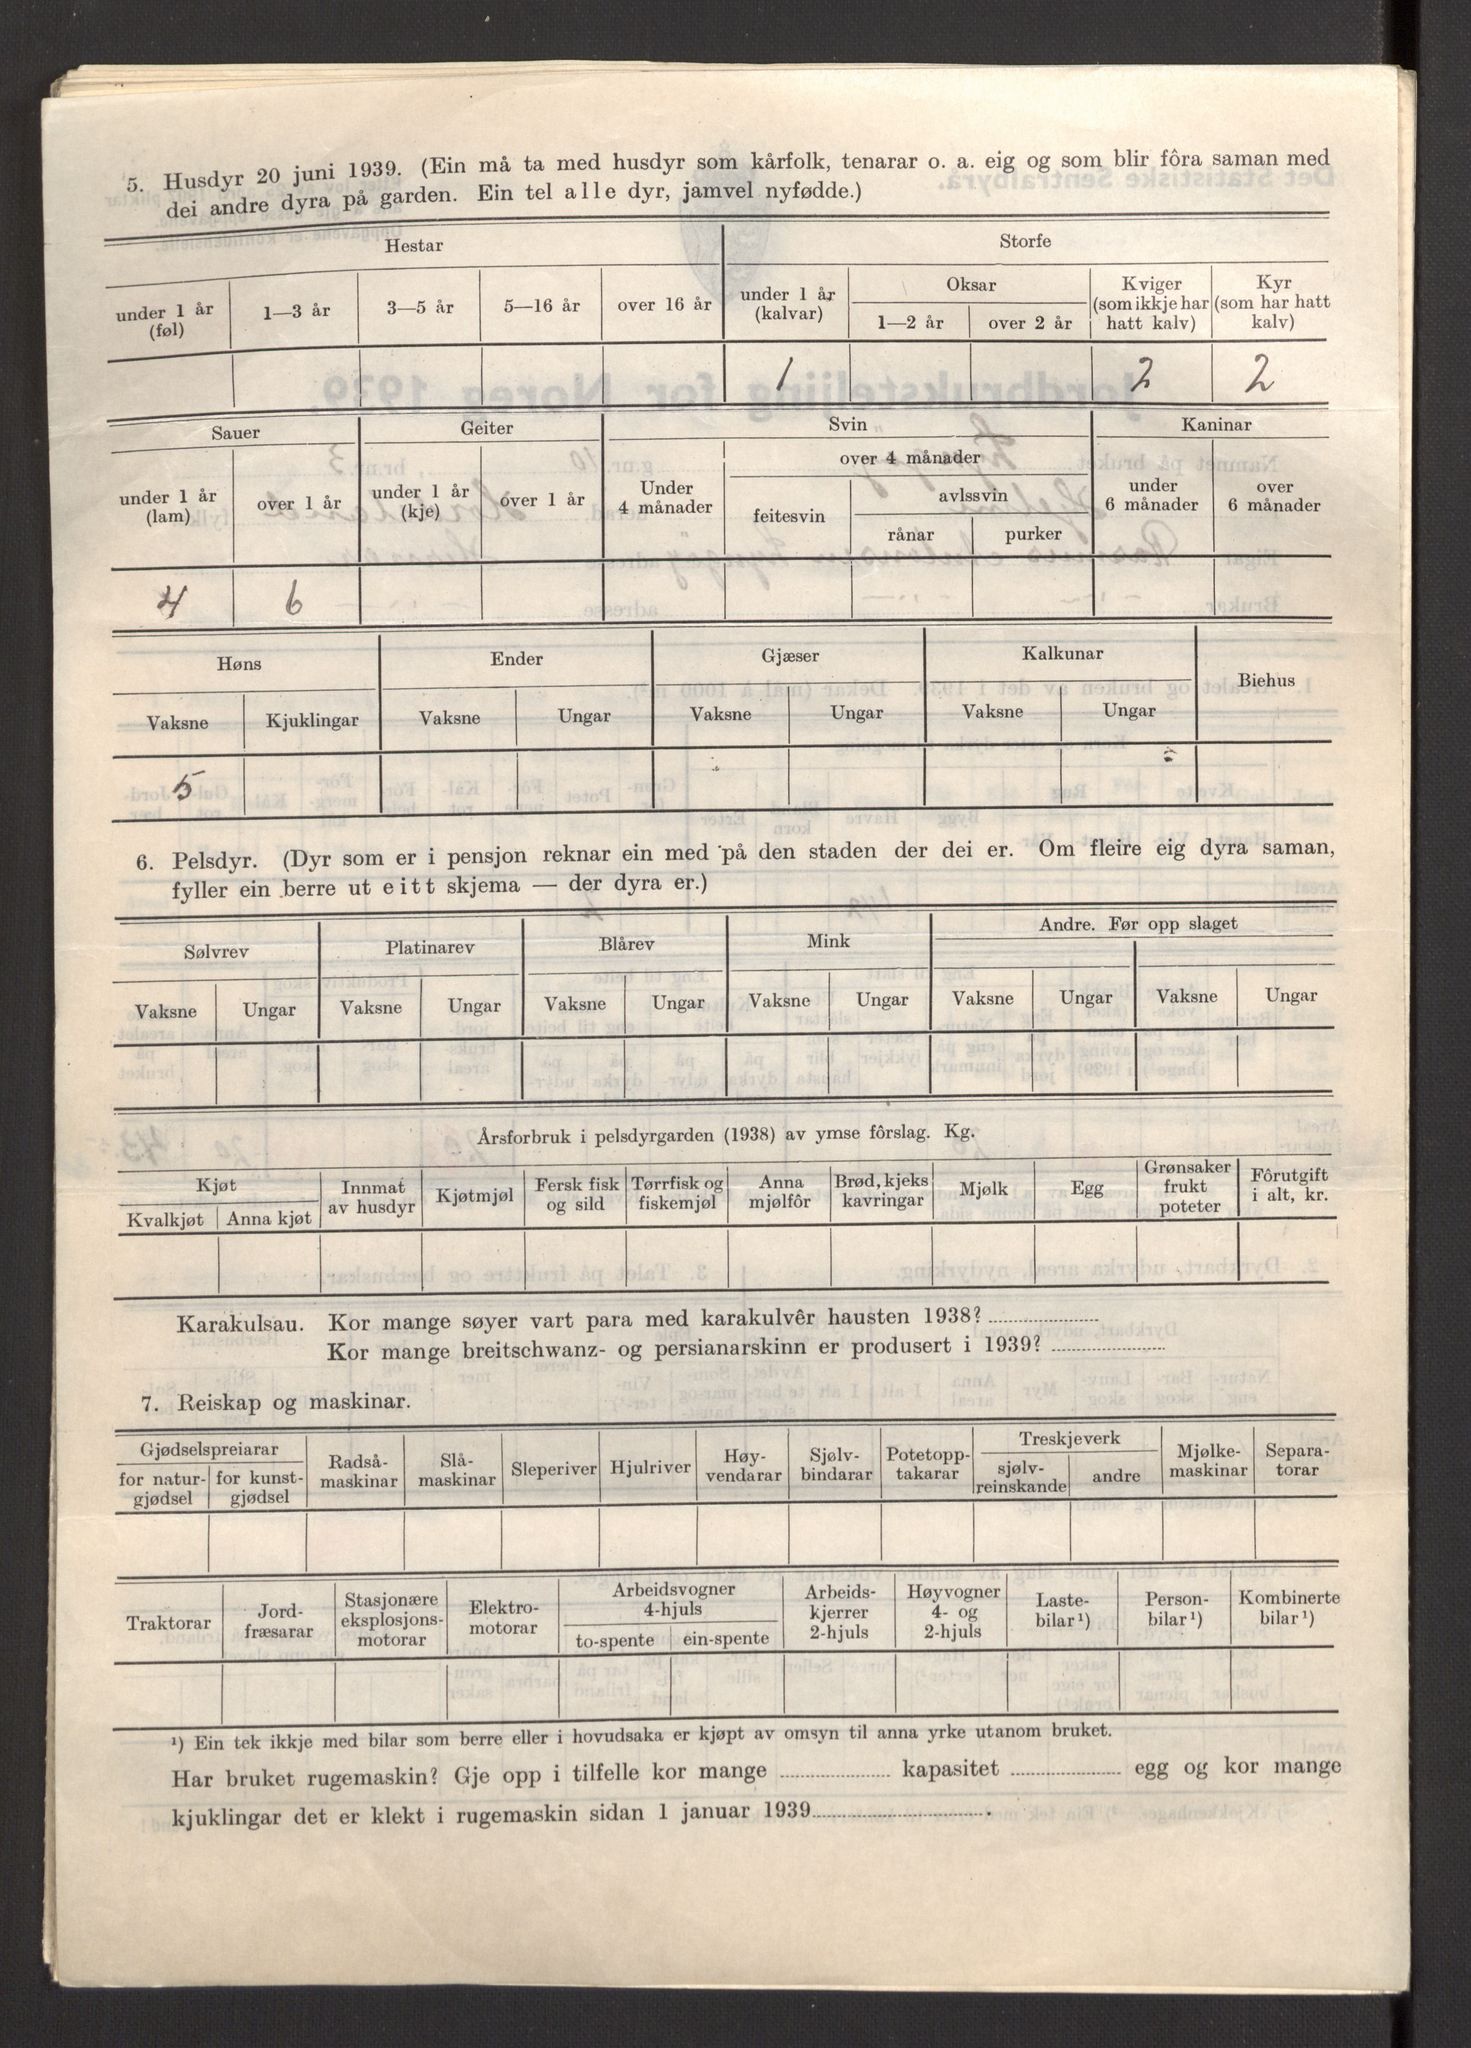 5. Husdyr 20 juni 1939. (Ein må ta med husdyr som kårfolk, tenarar o. a. eig og som blir fôra saman med
dei andre dyra på garden. Ein tel alle dyr, jamvel nyfødde.)
Hestar Storfe
under 1 år (føl) 1—3 år 3—5 år 5—16 år over 16 år under 1 år (kalvar) Oksar 1—2 år over 2 år Kviger (som ikkje har hatt kalv) Kyr (som har hatt kalv)
1 2 2
Sauer Geiter Svin Kaninar
over 4 månader
under 1 år (lam) over 1 år under 1 år (kje) over 1 år Under 4 månader feitesvin avlssvin rånar purker under 6 månader over 6 månader
4 6
Høns Ender Gjæser Kalkunar Biehus
Vaksne Kjuklingar Vaksne Ungar Vaksne Ungar Vaksne Ungar
5
6. Pelsdyr. (Dyr som er i pensjon reknar ein med på den staden der dei er. Om fleire eig dyra saman,
fyller ein berre ut eitt skjema — der dyra er.)
Sølvrev Platinarev Blårev Mink Andre. Før opp slaget
Vaksne Ungar Vaksne Ungar Vaksne Ungar Vaksne Ungar Vaksne Ungar Vaksne Ungar
Årsforbruk i pelsdyrgarden (1938) av ymse fôrslag. Kg.
Kjøt Kvalkjøt Anna kjøt Innmat av husdyr Kjøtmjøl Fersk fisk og sild Tørrfisk og fiskemjøl Anna mjølfôr Brød, kjeks kavringar Mjølk Egg Grønsaker frukt poteter Fôrutgift i alt, kr.
Karakulsau. Kor mange søyer vart para med karakulvêr hausten 1938?
Kor mange breitschwanz- og persianarskinn er produsert i 1939?
7. Reiskap og maskinar.
Gjødselspreiarar for natur-gjødsel for kunst-gjødsel Radså-maskinar Slå-maskinar Sleperiver Hjulriver Høy-vendarar Sjølv-bindarar Potetopp-takarar Treskjeverk sjølv-reinskande andre Mjølke-maskinar Separa-torar
Traktorar Jord-fræsarar Stasjonære eksplosjons-motorar Elektro-motorar Arbeidsvogner 4-hjuls to-spente ein-spente Arbeids-kjerrer 2-hjuls Høyvogner 4- og 2-hjuls Laste-bilar¹) Person-bilar¹) Kombinerte bilar¹)
¹) Ein tek ikkje med bilar som berre eller i hovudsaka er kjøpt av omsyn til anna yrke utanom bruket.
Har bruket rugemaskin? Gje opp i tilfelle kor mange kapasitet egg og kor mange
kjuklingar det er klekt i rugemaskin sidan 1 januar 1939